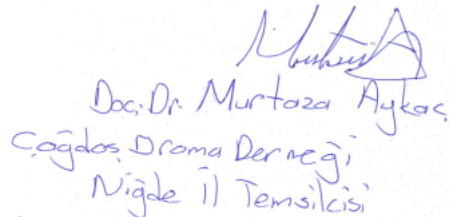 Doç. Dr. Murtaza Aykaç
Çağdaş Drama Derneği
Niğde İl Temsilcisi